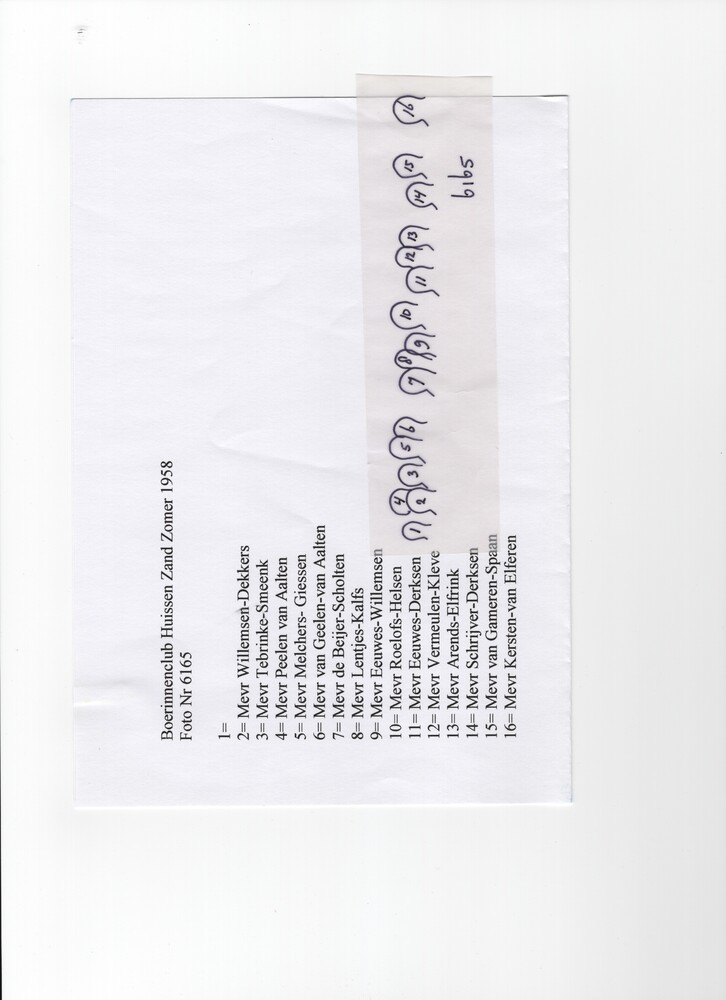 Boerinnenclub Huissen Zand Zomer 1958
Foto Nr 6165
1=
2= Mevr Willemsen-Dekkers
3= Mevr Tebrinke-Smeenk
4= Mevr Peelen van Aalten
5= Mevr Melchers- Giessen
6= Mevr van Geelen-van Aalten
7= Mevr de Beijer-Scholten
8= Mevr Lentjes-Kalfs
9= Mevr Eeuwes-Willemsen
10= Mevr Roelofs-Helsen
11= Mevr Eeuwes-Derksen
12= Mevr Vermeulen-Kleve
13= Mevr Arends-Elfrink
14= Mevr Schrijver-Derksen
15= Mevr van Gameren-Spaan
16= Mevr Kersten-van Elferen
1 2 4 3 5 6 7 8 9 10 11 12 13 14 15 16
6165